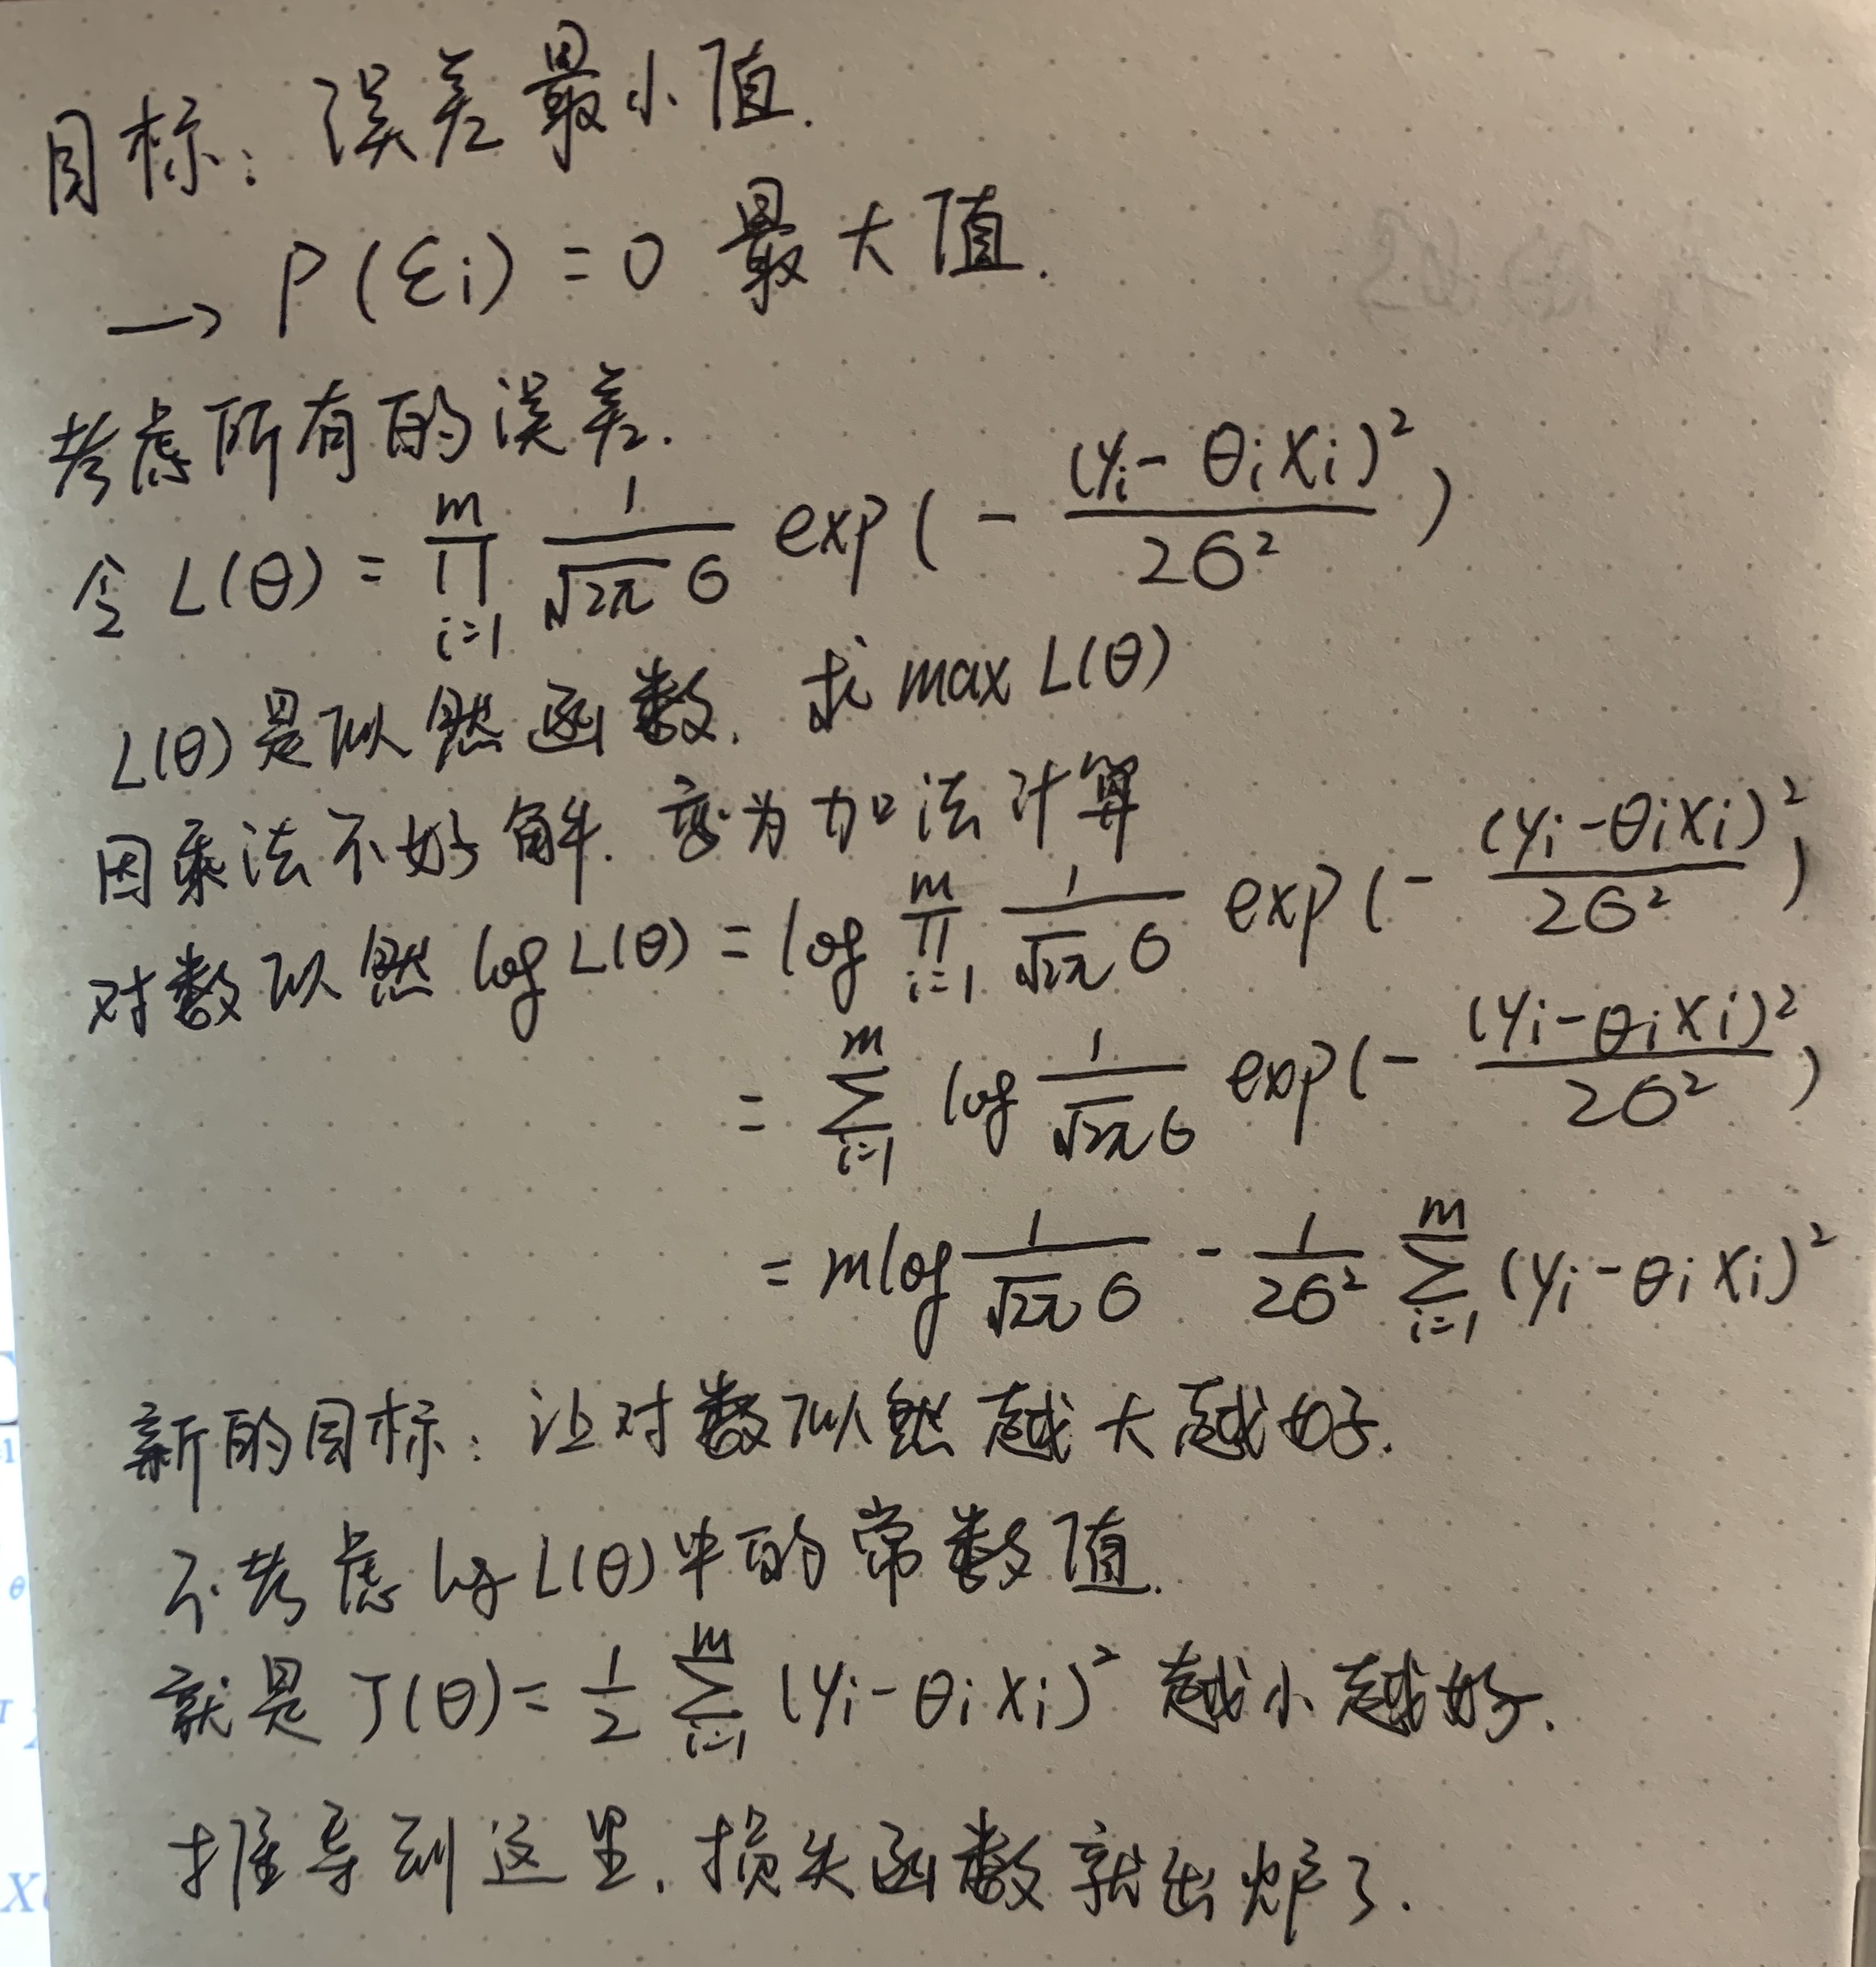 目标：误差最小值.
→ P(εi) = 0 最大值.
考虑所有的误差.
令 L(θ) = ∏_{i=1}^{m} \frac{1}{\sqrt{2π} σ} exp(- \frac{(yi - θi xi)²}{2σ²})
L(θ)是似然函数. 求 max L(θ)
因乘法不好解. 变为加法计算
对数似然 log L(θ) = log ∏_{i=1}^{m} \frac{1}{\sqrt{2π} σ} exp(- \frac{(yi - θi xi)²}{2σ²})
= ∑_{i=1}^{m} log \frac{1}{\sqrt{2π} σ} exp(- \frac{(yi - θi xi)²}{2σ²})
= m log \frac{1}{\sqrt{2π} σ} - \frac{1}{2σ²} ∑_{i=1}^{m} (yi - θi xi)²
新的目标：让对数似然越大越好.
不考虑 log L(θ)中的常数值.
就是 J(θ) = \frac{1}{2} ∑_{i=1}^{m} (yi - θi xi)² 越小越好.
推导到这里. 损失函数就出炉了.